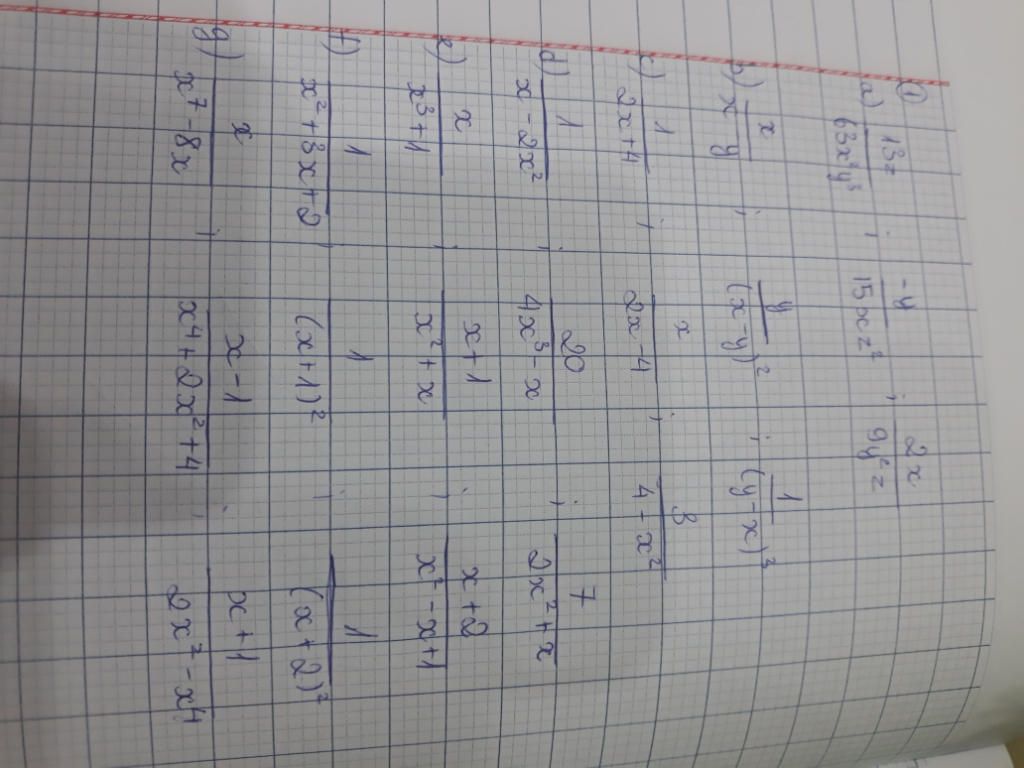 ①
a) 13z/63x⁴y³ ; -y/15xz² ; 2x/9y²z
b) x/x-y ; y/(x-y)² ; 1/(y-x)³
c) 1/2x+4 ; x/2x-4 ; 3/4-x²
d) 1/x-2x² ; 20/4x³-x ; 7/2x²+x
e) x/x³+1 ; x+1/x²+x ; x+2/x²-x+1
f) 1/x²+3x+2 ; 1/(x+1)² ; 1/(x+2)²
g) x/x⁷-8x ; x-1/x⁴+2x²+4 ; x+1/2x²-x⁴